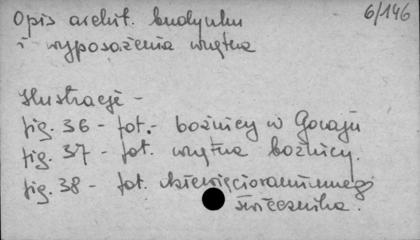 6/146
Opis archit. budynku
i wyposażenia wnętrza
Ilustracje -
fig. 36 - fot. - bożnicy w Goraju
fig. 37 - fot. wnętrza bożnicy.
fig. 38 - fot. dziewięcioramiennego
świecznika.